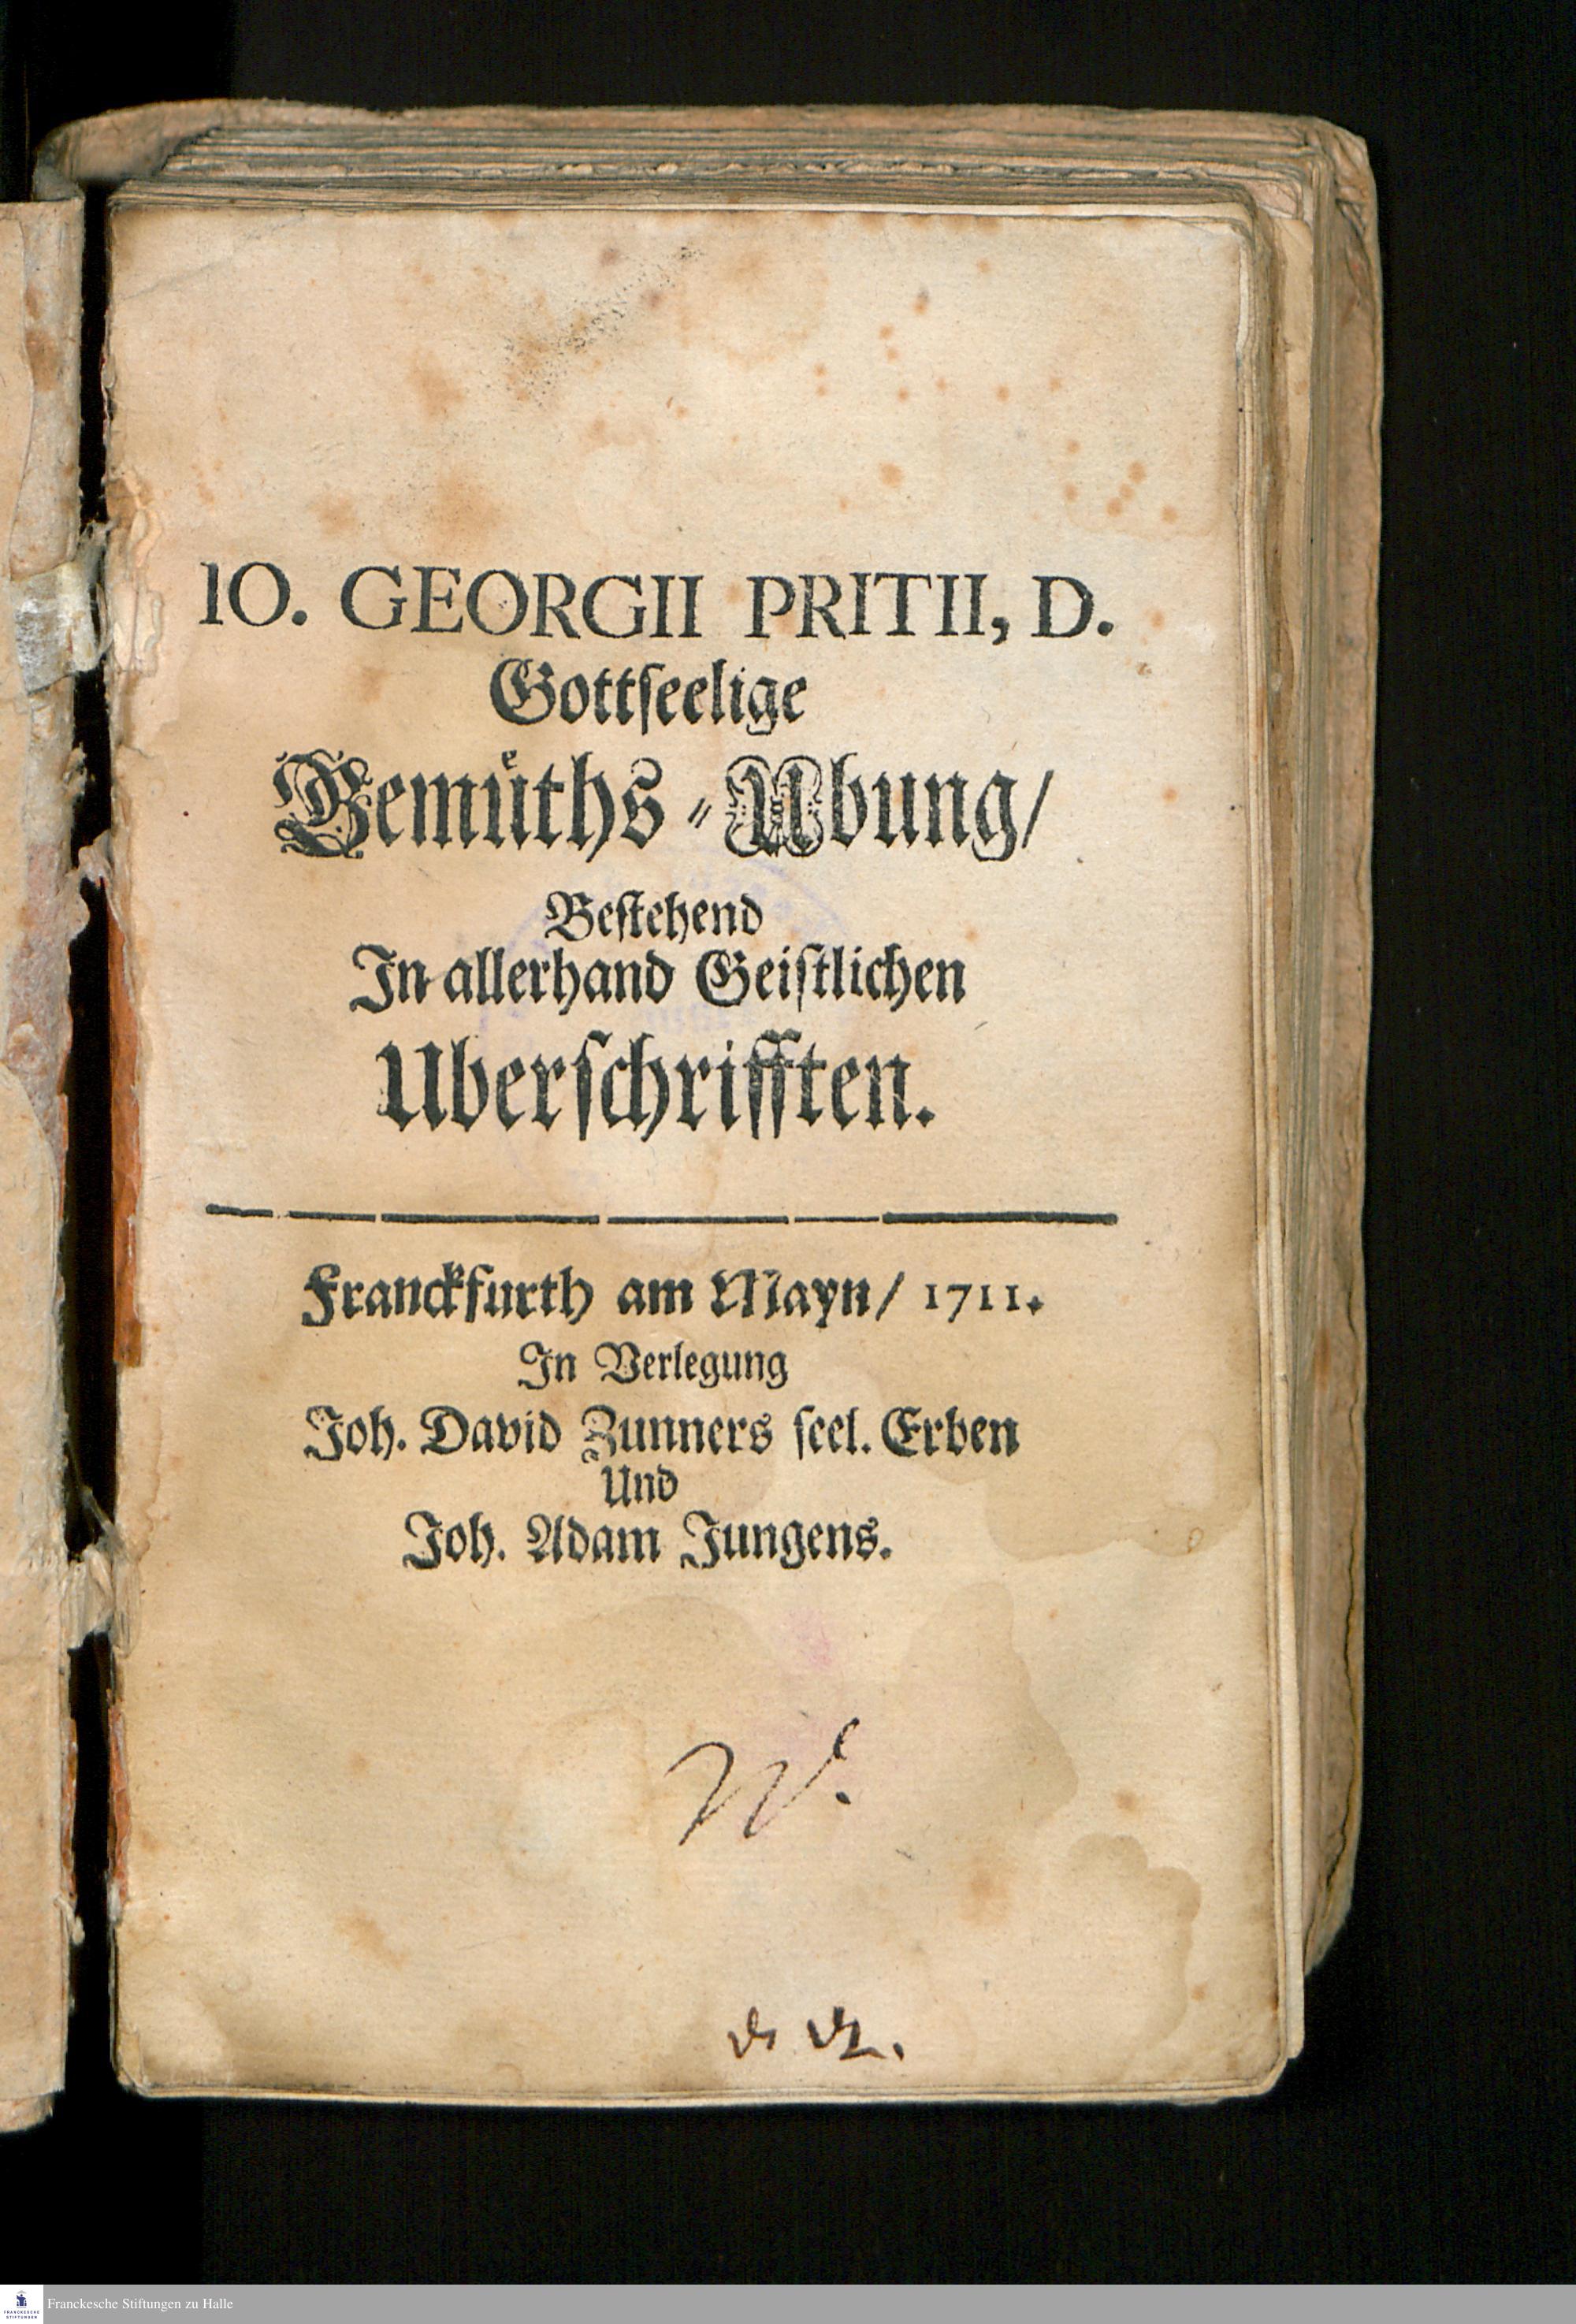 IO. GEORGII PRITII, D.
Gottſeelige
Gemuͤths-Ubung/
Beſtehend
In allerhand Geiſtlichen
Uberſchrifften.
Franckfurth am Mayn/ 1711.
In Verlegung
Joh. David Zunners ſeel. Erben
Und
Joh. Adam Jungens.
W.
FRANCKESCHE
STIFTUNGEN
Franckesche Stiftungen zu Halle